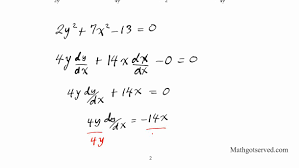 2y² + 7x² - 13 = 0
4y dy/dx + 14x dx/dx - 0 = 0
4y dy/dx + 14x = 0
4y dy/dx = -14x
4y
2
Mathgotserved.com